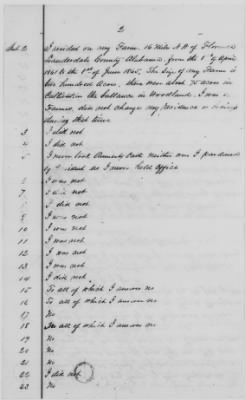 2
Int. 2 I resided on my Farm 16 Miles N.W. of Florence
Lauderdale County Alabama, from the 1st of April
1861 to the 1st of June 1865, The Size of my Farm is
two hundred Acres, there were about 75 acres in
Cultivation the ballance in Woodland. I was a
Farmer, did not change my residence or business
during that time
3 I did not
4 I did not
5 I never took Amnesty Oath neither was I pardoned
by President as I never held office
6 I was not
7 I did not
8 I did not
9 I was not
10 I was not
11 I was not
12 I was not
13 I was not
14 I did not
15 To all of which I answer no
16 To all of which I answer no
17 No
18 To all of which I answer no
19 No
20 No
21 No
22 I did not
23 No